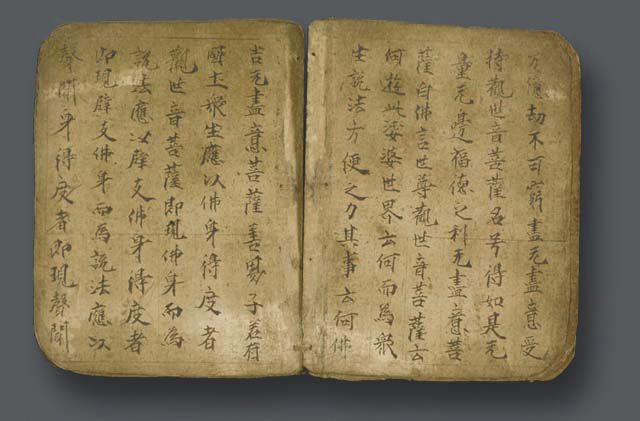 万億劫不可窮盡无盡意受
持觀世音菩薩名号得如是无
量无邊福德之利无盡意菩
薩白佛言世尊觀世音菩薩云
何遊此娑婆世界云何而為衆
生說法方便之力其事云何佛
告无盡意菩薩善男子若有
國土衆生應以佛身得度者
觀世音菩薩即現佛身而為
說法應以辟支佛身得度者
即現辟支佛身而為說法應以
聲聞身得度者即現聲聞